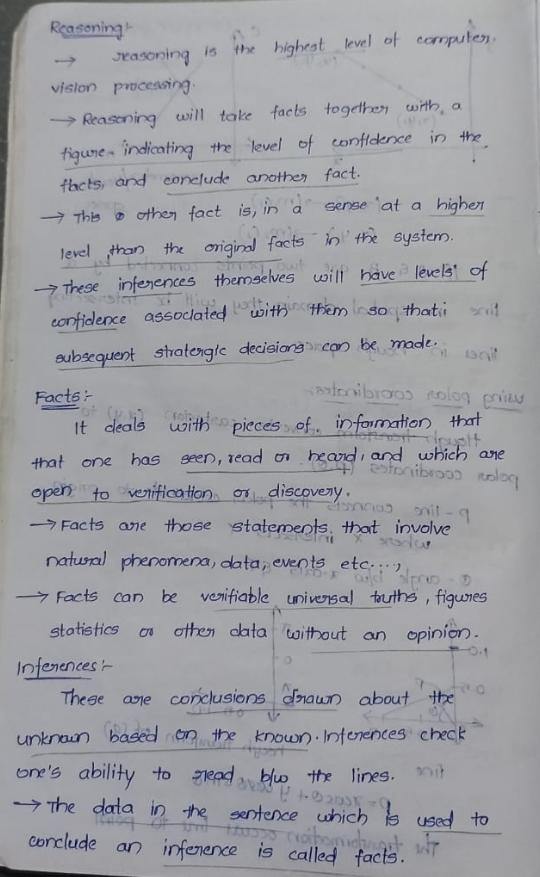 Reasoning:-
→ reasoning is the highest level of computer
vision processing.
→ Reasoning will take facts together with a
figure indicating the level of confidence in the
facts, and conclude another fact.
→ This other fact is, in a sense at a higher
level than the original facts in the system.
→ These inferences themselves will have levels of
confidence associated with them so that
subsequent stratergic decisions can be made.
Facts:-
It deals with pieces of information that
that one has seen, read or heard, and which are
open to verification or discovery.
→ Facts are those statements that involve
natural phenomena, data, events etc...,
→ Facts can be verifiable universal truths, figures
statistics or other data without an opinion.
Inferences:-
These are conclusions drawn about the
unknown based on the known. Inferences check
one's ability to read b/w the lines.
→ The data in the sentence which is used to
conclude an inference is called facts.